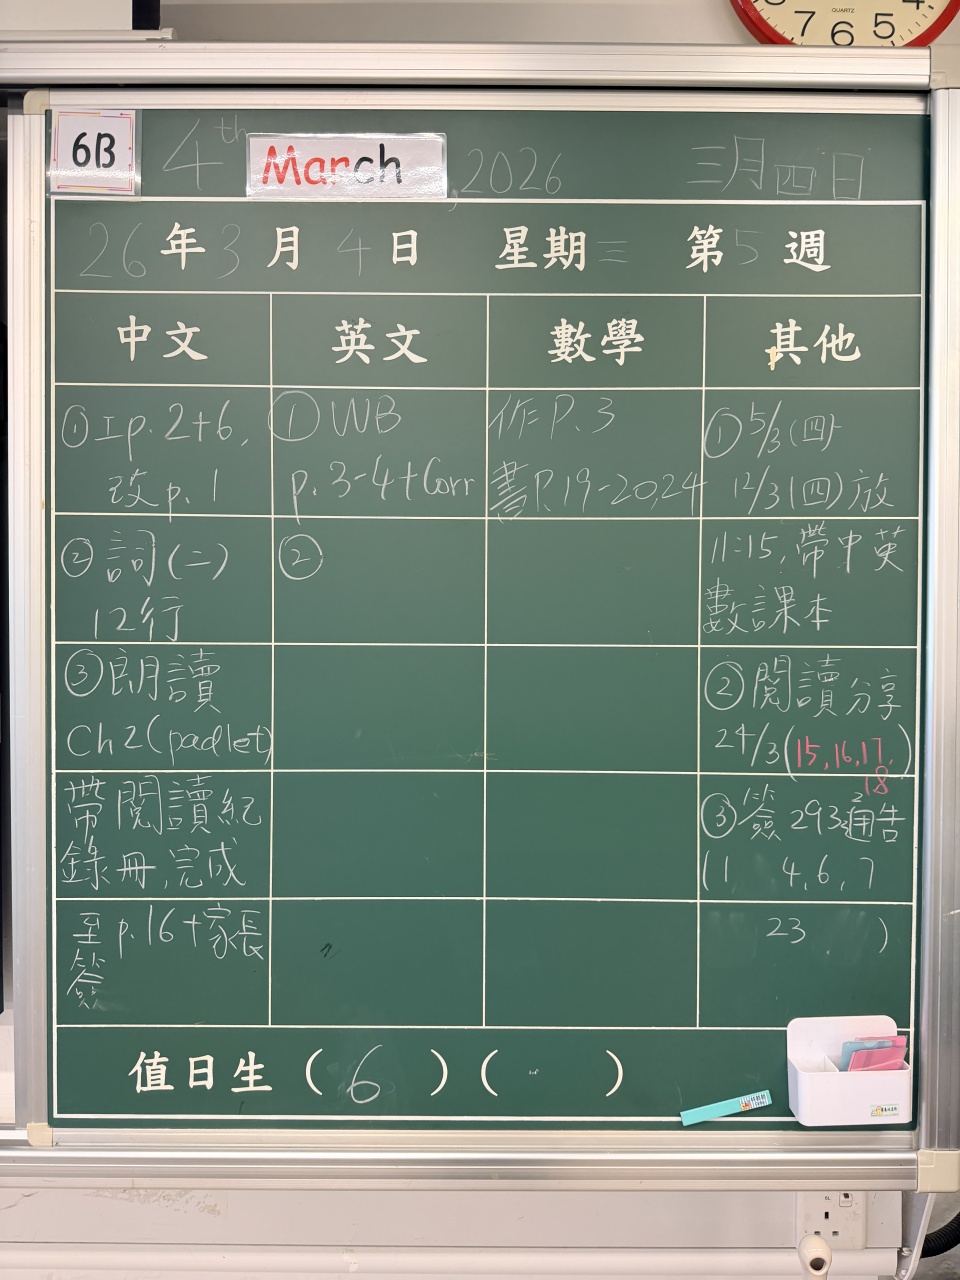 7 6 5
QUARTZ
6B
4th March, 2026 三月四日
26年3月4日 星期三 第5週
中文 英文 數學 其他
①工p.2+6,
改p.1
②詞(二)
12行
③朗讀
Ch2(padlet)
帶閱讀紀
錄冊,完成
至p.16+家長
簽
①WB
p.3-4+Corr
②
作P.3
書P.19-20,24
①5/3(四)
12/3(四)放
11:15,帶中英
數課本
②閱讀分享
24/3(15,16,17,
18)
③簽293通告
(1 4,6,7
23 )
值日生(6)( )